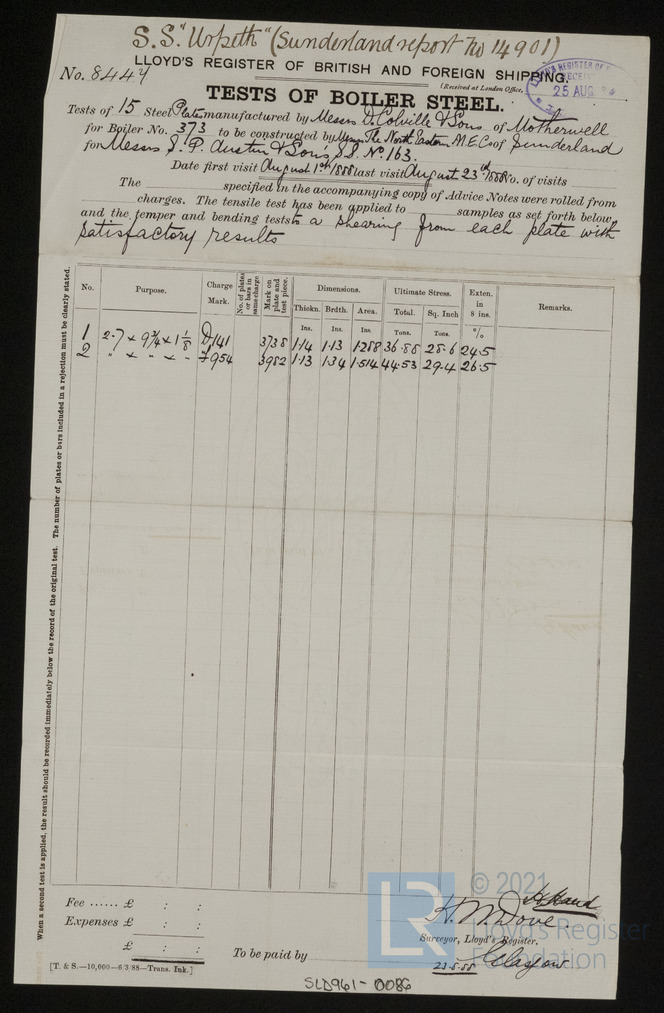 S.S. "Urpeth" (Sunderland report No 14901)
No. 8444
LLOYD'S REGISTER OF BRITISH AND FOREIGN SHIPPING.
(Received at London Office,
LLOYD'S REGISTER OF
RECEIVED
25 AUG
TESTS OF BOILER STEEL.
Tests of 15 Steel Plates manufactured by Messrs D. Colville & Sons of Motherwell
for Boiler No. 373 to be constructed by Messrs The North Eastern M.E. Co of Sunderland
for Messrs S. P. Austin & Son's S.S. No. 163.
Date first visit August 1st 1888 last visit August 23rd 1888 No. of visits
The specified in the accompanying copy of Advice Notes were rolled from
charges. The tensile test has been applied to samples as set forth below,
and the temper and bending tests to a shearing from each plate with
satisfactory results
No. Purpose. Charge Mark. No. of plates or bars in same charge Mark on plate and test piece. Dimensions. Ultimate Stress. Exten. in 8 ins. Remarks.
Thickn. Brdth. Area. Total. Sq. Inch
Ins. Ins. Ins. Tons. Tons. %
1 2·7 × 9¾ × 1⅛ D141 3738 1·14 1·13 1·288 36·88 28·6 24·5
2 " × " × " 7954 3982 1·13 1·34 1·514 44·53 29·4 26·5
When a second test is applied, the result should be recorded immediately below the record of the original test. The number of plates or bars included in a rejection must be clearly stated.
Fee ...... £ : :
Expenses £ : :
£ : :
To be paid by
[T. & S.—10,000—6/3/88—Trans. Ink.]
H. M. Dove.
Surveyor, Lloyd's Register.
Glasgow
23·8·88
© 2021
LR
Lloyd's Register
Foundation
SLD961-0086